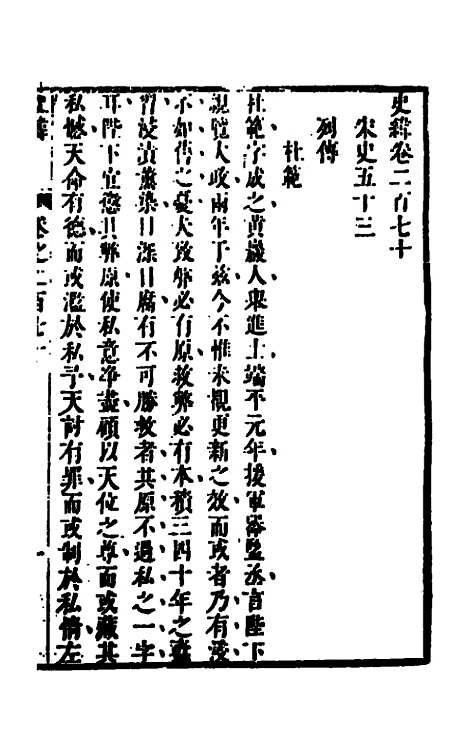 史緯卷二百七十
宋史五十三
列傳
杜範
杜範字成之黃巖人舉進士端平元年授軍器監丞言陛下
親覽大政兩年于茲今不惟未覩更新之效而或者乃有浸
不如舊之憂夫致弊必有原救弊必有本積三四十年之蠹
習浸漬薰染日深日腐有不可勝救者其原不過私之一字
耳陛下宜懲其弊原使私意淨盡顧以天位之尊而或藏其
私憾天命有德而或濫於私予天討有罪而或制於私情左
卷之二百七十